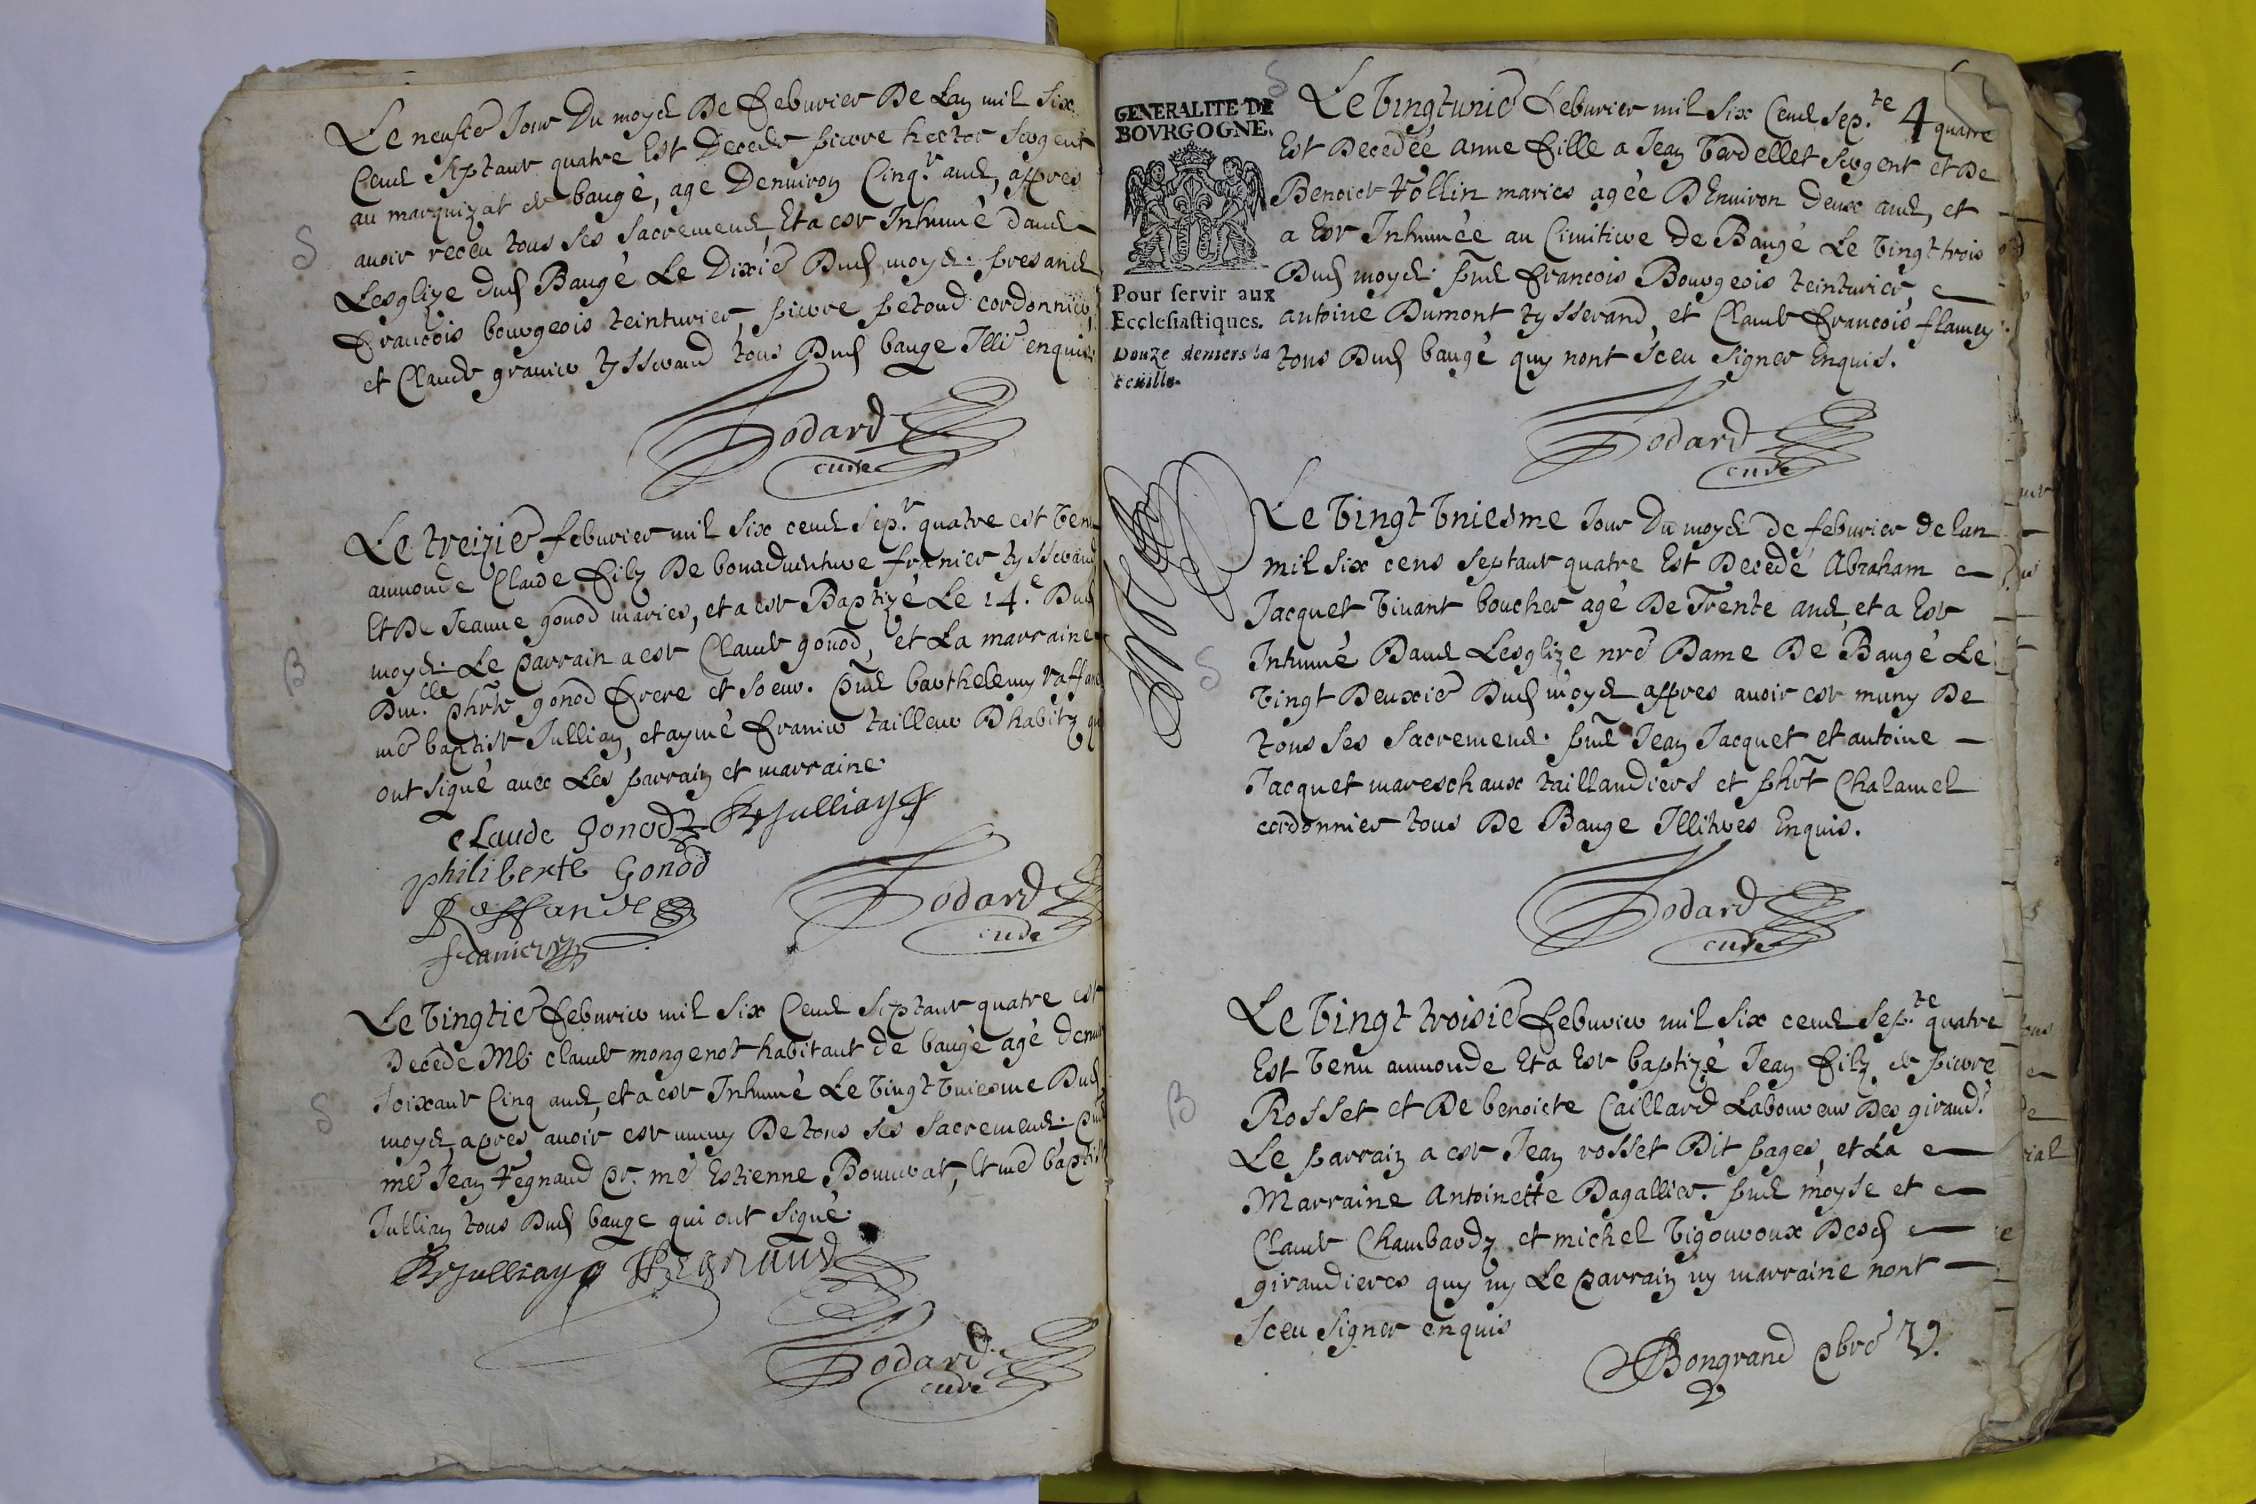 Le neufie Jour Du moys De febvrier De Lan mil six
Cens septante quatre Est Decedé pierre hector sergent
au marquizat de baugé, agé Denviron Cinq.te ans, appres
avoir receu tous ses sacremens, Et a esté Inhumé dans
S
Lesglize dud Baugé Le Dixie Dud moys. presans
francois bourgeois teinturier, pierre petoud cordonnier,
et Claude granier tysserand tous Dud bauge Illi.e enquis
Todard
curé
Le treizie febvrier mil six cens sep.te quatre est venu
aumonde Claude filz De bonadventure franier tysserand
Et De Jeanne gonod maries, et a esté Baptizé Le 14.e Dud
moys. Le parrain a esté Claude gonod, et La marraine
B
Dm.lle phrte gonod frere et soeur. pns barthelemy raffan
me baptiste Jullian, et aymé franier tailleur Dhabitz qui
ont signé avec Les parrain et marraine.
claude gonod BJullian
philiberte Gonod
Raffande
franier
Todard
curé
Le vingtie febvrier mil six Cens septante quatre est
Decedé Me claude mongenot habitant de baugé agé denv
soixante Cinq ans, et a esté Inhumé Le vingt uniesme Dud
S
moys, apres avoir esté muny De tous ses sacremens. pns
me Jean regnaud pr. me Estienne Bonnerat, Et me baptist
Jullian tous Dud bauge qui ont signé.
BJullian Regnaud
Todard
curé
S
GENERALITE DE
BOVRGOGNE.
Pour servir aux
Ecclesiastiques.
Douze deniers la
feuille.
Le vingtunie febvrier mil six Cens sep.te 4 quatre
Est Decedée anne fille a Jean verdellet sergent et De
Benoiste vollin maries agée DEnviron deux ans, et
a Esté Inhumée au Cimitiere De Baugé Le vingt trois
Dud moys. pns francois Bourgeois teinturier,
antoine Dumont tysserand, et Claude francois flamey
tous Dud baugé quy nont sceu signer Enquis.
Todard
curé
Le vingt uniesme Jour Du moys de febvrier de lan
mil six cens septante quatre Est Decedé Abraham
Jacquet vivant boucher agé De Trente ans, et a Esté
S
Inhumé Dans Lesglize nre Dame De Baugé Le
vingt Deuxie Dud moys appres avoir esté muny De
tous ses sacremens. pns Jean Jacquet et antoine
Jacquet mareschaux taillandiers et phrt Chalamel
cordonnier tous De Bauge Illitres Enquis.
Todard
curé
Le vingt troisie febvrier mil six cens sep.te quatre
Est venu aumonde Et a Esté baptizé Jean filz de pierre
B
Rosset et De benoicte Caillard Laboureur Des giraud.
Le parrain a esté Jean rosset Dit pages, et La
Marraine Antoinette Dagallier. pns moyse et
Claude Chambardz et michel vigouroux Desd
giraudieres quy ny Le parrain ny marraine nont
sceu signer enquis
Bongrand pbre V.